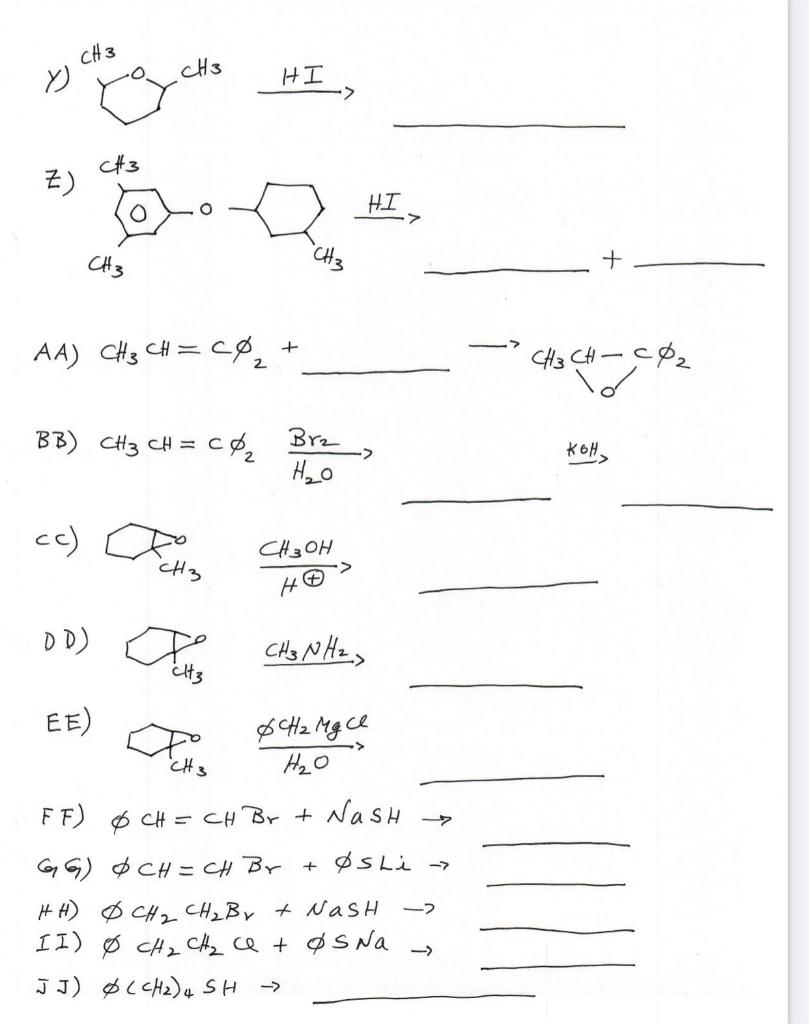 Y) CH3 O CH3 HI
Z) CH3 O O HI
CH3 CH3 +
AA) CH3 CH = CØ2 + → CH3 CH – CØ2
O
BB) CH3 CH = CØ2 Br2 → KOH →
H2O
CC) O CH3 CH3OH →
H⊕
DD) O CH3 CH3NH2 →
EE) O CH3 ØCH2MgCl →
H2O
FF) Ø CH = CH Br + NaSH →
GG) Ø CH = CH Br + ØSLi →
HH) Ø CH2 CH2Br + NaSH →
II) Ø CH2 CH2 Cl + ØSNa →
JJ) Ø(CH2)4 SH →